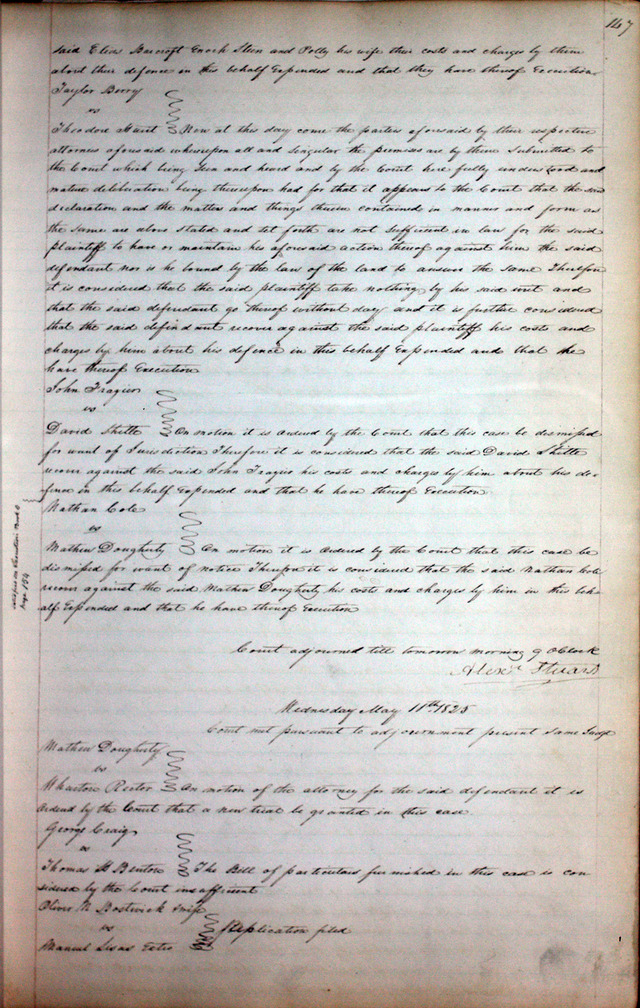 147
said Elias Barcroft Enoch Steen and Polly his wife their costs and charges by them
about their defence in this behalf Expended and that they have thereof Execution
Taylor Berry
vs
Theodore Hunt Now at this day come the parties aforesaid by their respective
attorneys aforesaid whereupon all and singular the premises are by them submitted to
the Court which being seen and heard and by the Court here fully understood and
mature deliberation being thereupon had for that it appears to the Court that the said
declaration and the matters and things therein contained in manner and form as
the same are above stated and set forth are not sufficient in law for the said
plaintiff to have or maintain his aforesaid action thereof against him the said
defendant nor is he bound by the law of the land to answer the same Therefore
it is considered that the said plaintiff take nothing by his said writ and
that the said defendant go thereof without day and it is further considered
that the said defendant recover against the said plaintiff his costs and
charges by him about his defence in this behalf Expended and that he
have thereof Execution
John Frazier
vs
David Shitte On motion it is ordered by the Court that this case be dismissed
for want of Jurisdiction Therefore it is considered that the said David Shitte
recover against the said John Frazier his costs and charges by him about his de-
fence in this behalf Expended and that he have thereof Execution
Nathan Cole
vs
Mathew Dougherty On motion it is ordered by the Court that this case be
dismissed for want of notice Therefore it is considered that the said Nathan Cole
recover against the said Mathew Dougherty his costs and charges by him in this beh-
alf Expended and that he have thereof Execution
page 154
Court adjourned till tomorrow morning 9 OClock
Alexr Stuart
Wednesday May 11th 1825
Court met pursuant to adjournment present same Judge
Mathew Dougherty
vs
Wharton Rector On motion of the attorney for the said defendant it is
ordered by the Court that a new trial be granted in this case
George Craig
vs
Thomas H Benton The Bill of particulars furnished in this case is con
sidered by the Court insufficient
Oliver N Bostwick & wife
vs Replication filed
Manuel Lisas Extrs